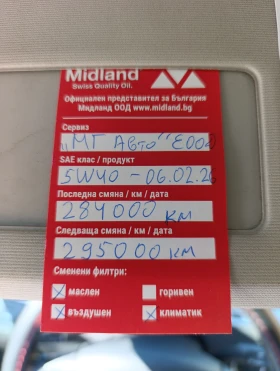 Midland
Swiss Quality Oil.
Официален представител за България
Мидланд ООД www.midland.bg
Сервиз
„МГ Авто" ЕООД
SAE клас / продукт
5W40 - 06.02.26
Последна смяна / км / дата
284000 км
Следваща смяна / км / дата
295000 км
Сменени филтри:
маслен горивен
въздушен климатик